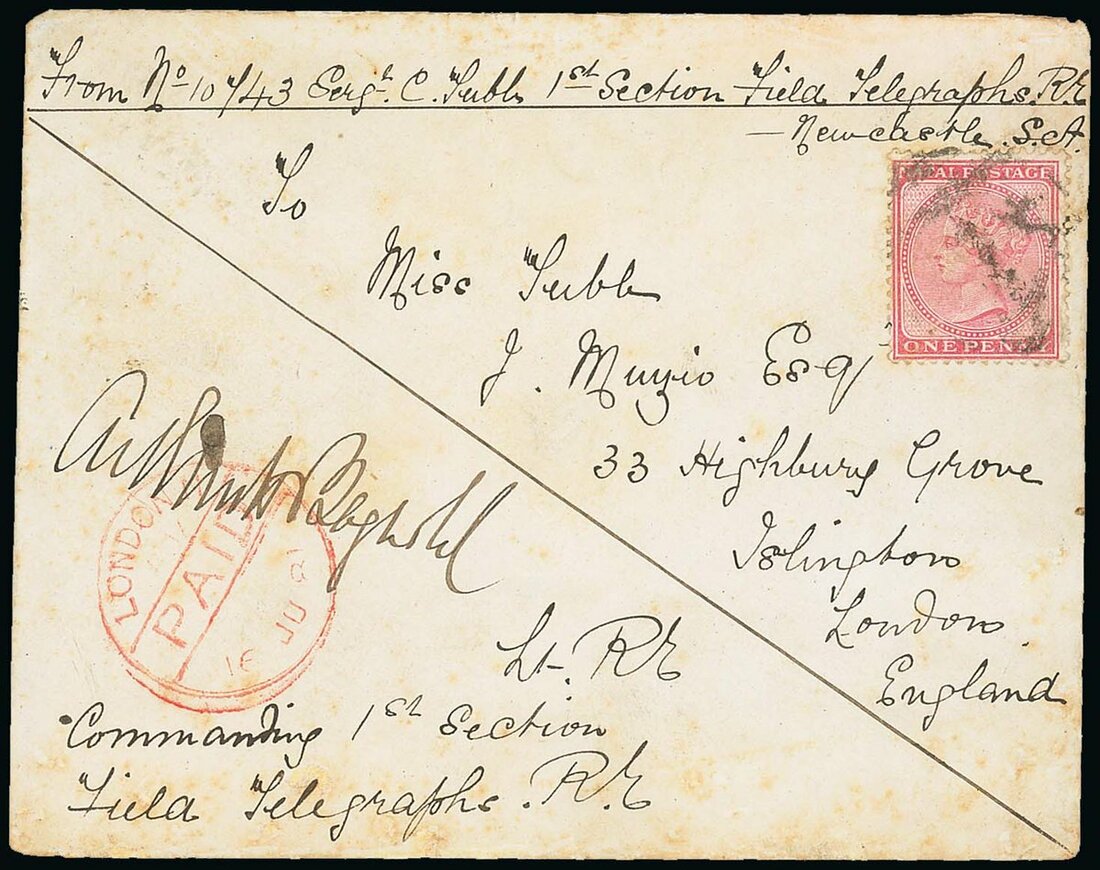 From No 10743 Sergt. C. Tubb 1st Section Field Telegraphs. R.E
— Newcastle. S.A.
NATAL POSTAGE
ONE PENNY
To
Miss Tubb
J. Muzio Esq
33 Highbury Grove
Islington
London
England
LONDON
PAID
16 JU 81
Lt. R.E
Commanding 1st Section
Field Telegraphs. R.E